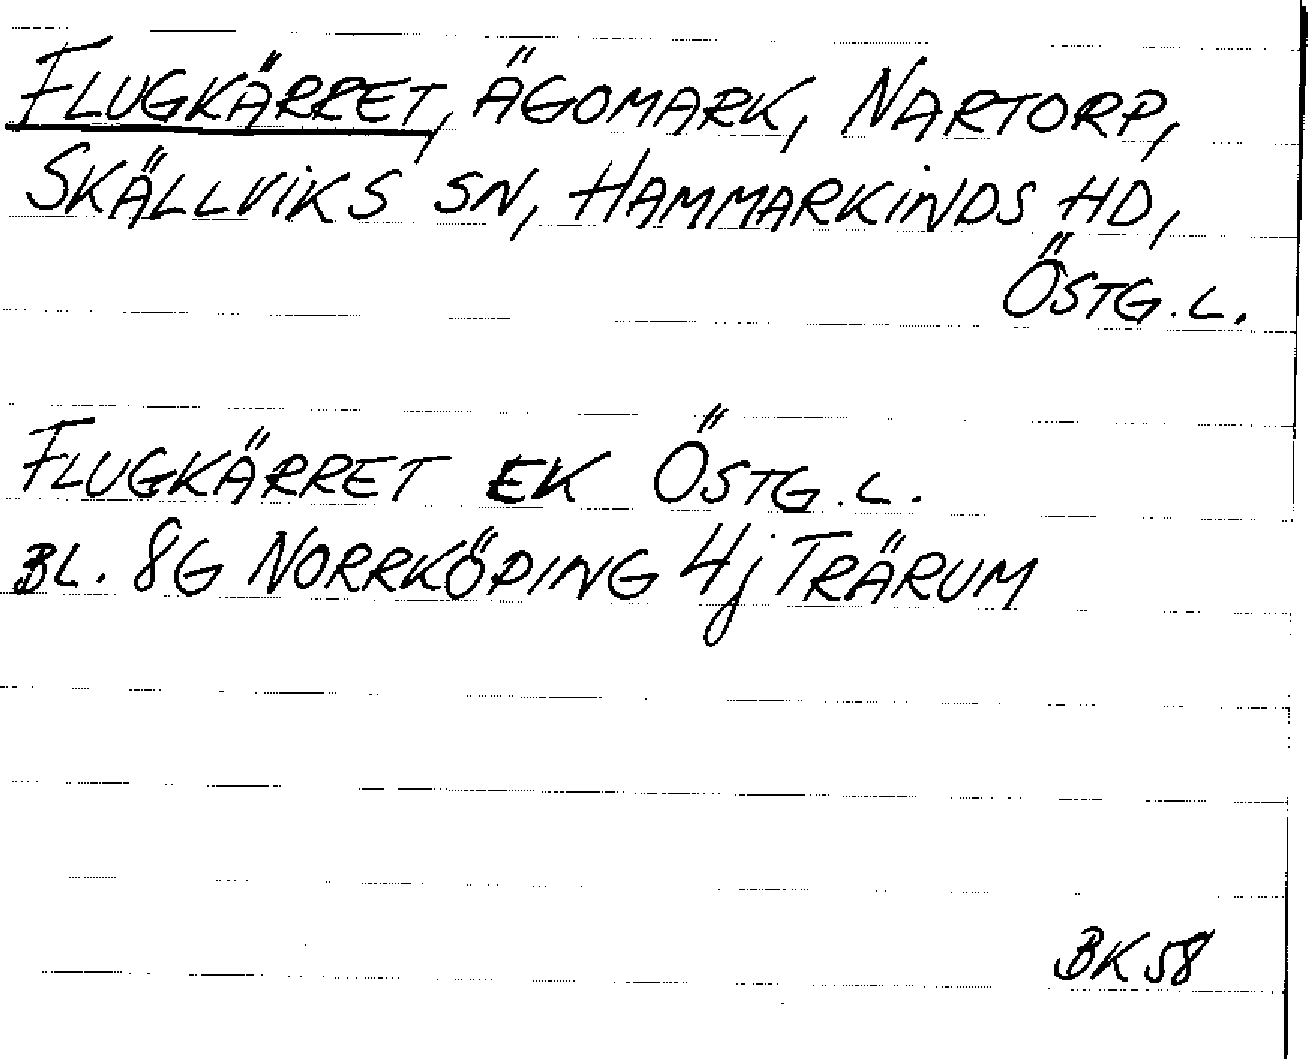 FLUGKÄRRET, ÄGOMARK, NARTORP,
SKÄLLVIKS SN, HAMMARKINDS HD,
ÖSTG. L.
FLUGKÄRRET EK ÖSTG. L.
BL. 8G NORRKÖPING 4j TRÄRUM
BK 58